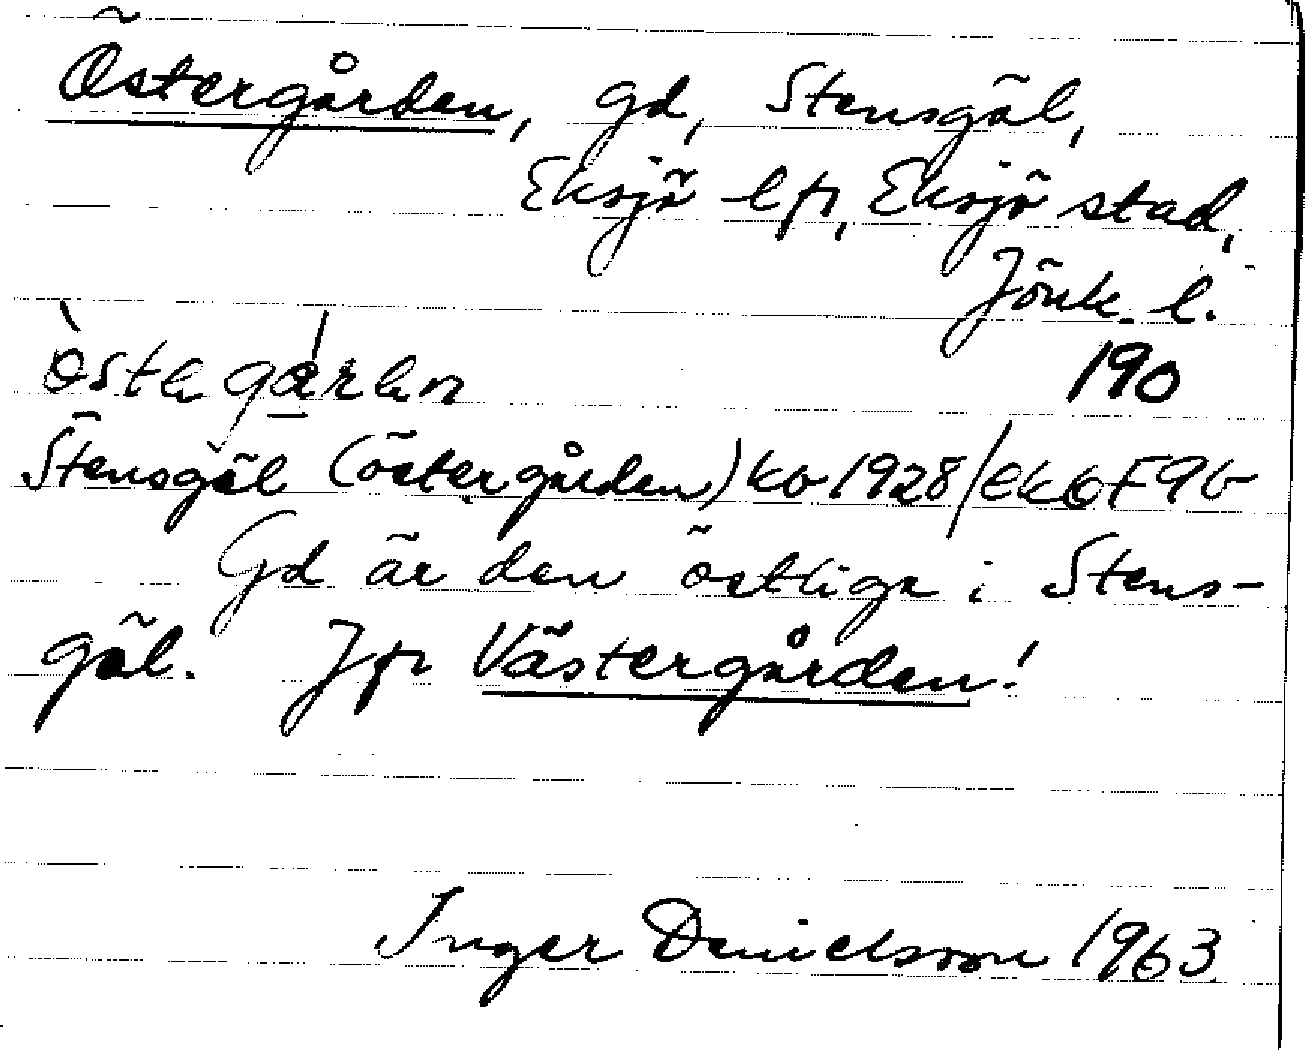 Östergården, gd, Stensgöl,
Eksjö lfs, Eksjö stad,
Jönk. l.
190
Stensgöl (östergården) kb 1928/ek 6F9b
Gd är den östliga i Stens-
göl. Jfr Västergården!
Inger Danielsson 1963